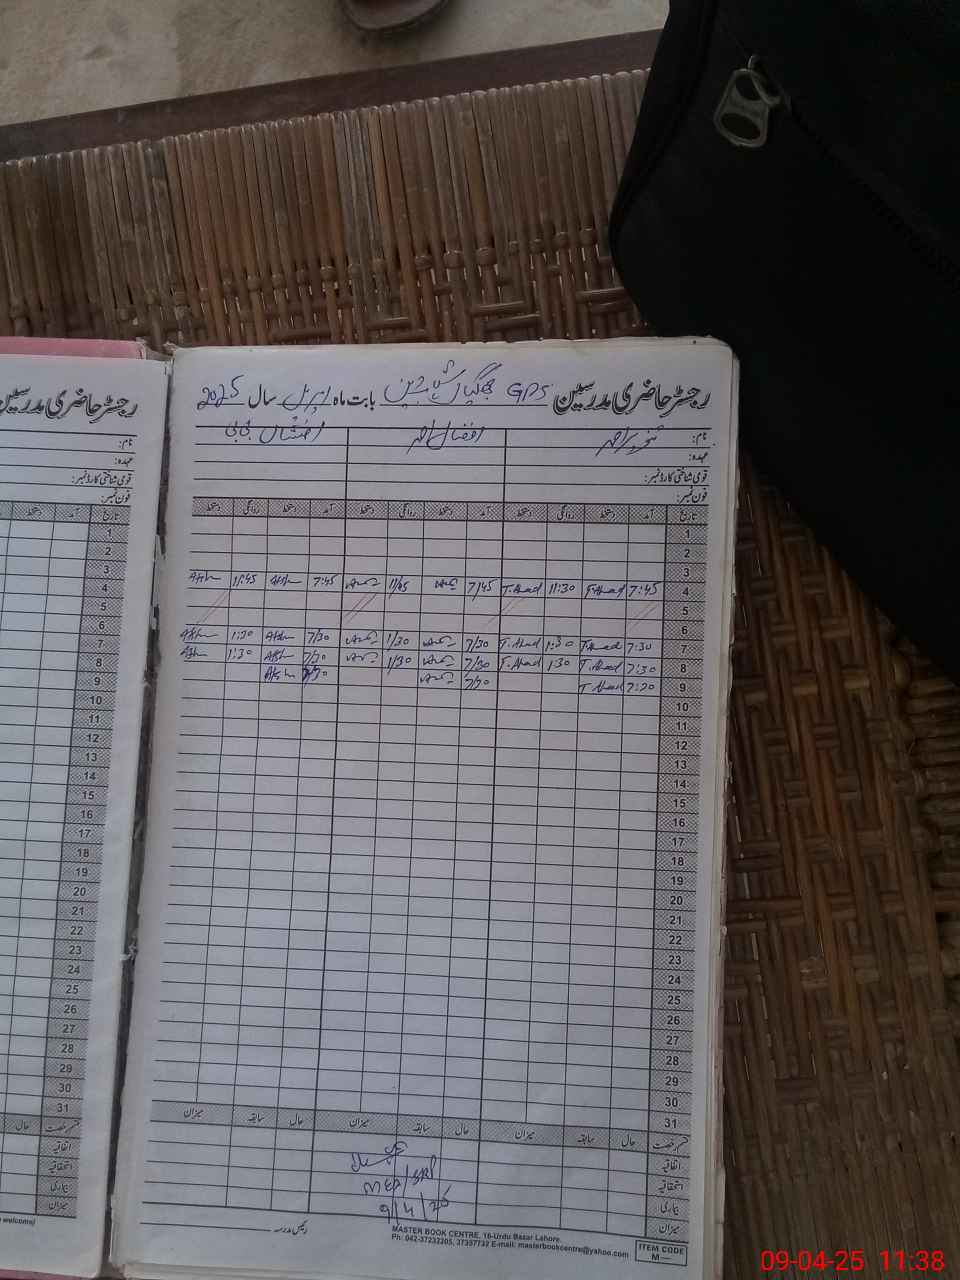 رجسٹر حاضری مدرسین GPS بابت ماہ اپریل سال 2025
نام: تنویر احمد افضال احمد افشاں بی بی
عہدہ:
قومی شناختی کارڈ نمبر:
فون نمبر:
تاریخ آمد دستخط روانگی دستخط آمد دستخط روانگی دستخط آمد دستخط روانگی دستخط
1
2
3
4 7:45 T.Ahmad 11:30 T.Ahmad 7/45 11/45 7:45 11:45
5
6
7 7:30 T.Ahmad 1:30 T.Ahmad 7/30 1/30 7/30 1:30
8 7:30 T.Ahmad 1:30 T.Ahmad 7/30 1/30 7/30 1:30
9 T.Ahmad 7/30
10
11
12
13
14
15
16
17
18
19
20
21
22
23
24
25
26
27
28
29
30
31
قسم رخصت حال سابقہ میزان حال سابقہ میزان حال سابقہ میزان
اتفاقیہ
استحقاقیہ
بیماری
میزان
9/4/25
رئیس مدرسہ
MASTER BOOK CENTRE, 16-Urdu Bazar Lahore.
Ph: 042-37232205, 37357732 E-mail: masterbookcentre@yahoo.com
ITEM CODE
M—
رجسٹر حاضری مدرسین
نام:
عہدہ:
قومی شناختی کارڈ نمبر:
فون نمبر:
تاریخ آمد دستخط
1
2
3
4
5
6
7
8
9
10
11
12
13
14
15
16
17
18
19
20
21
22
23
24
25
26
27
28
29
30
31
قسم رخصت حال
اتفاقیہ
استحقاقیہ
بیماری
میزان
welcome/
09-04-25 11:38